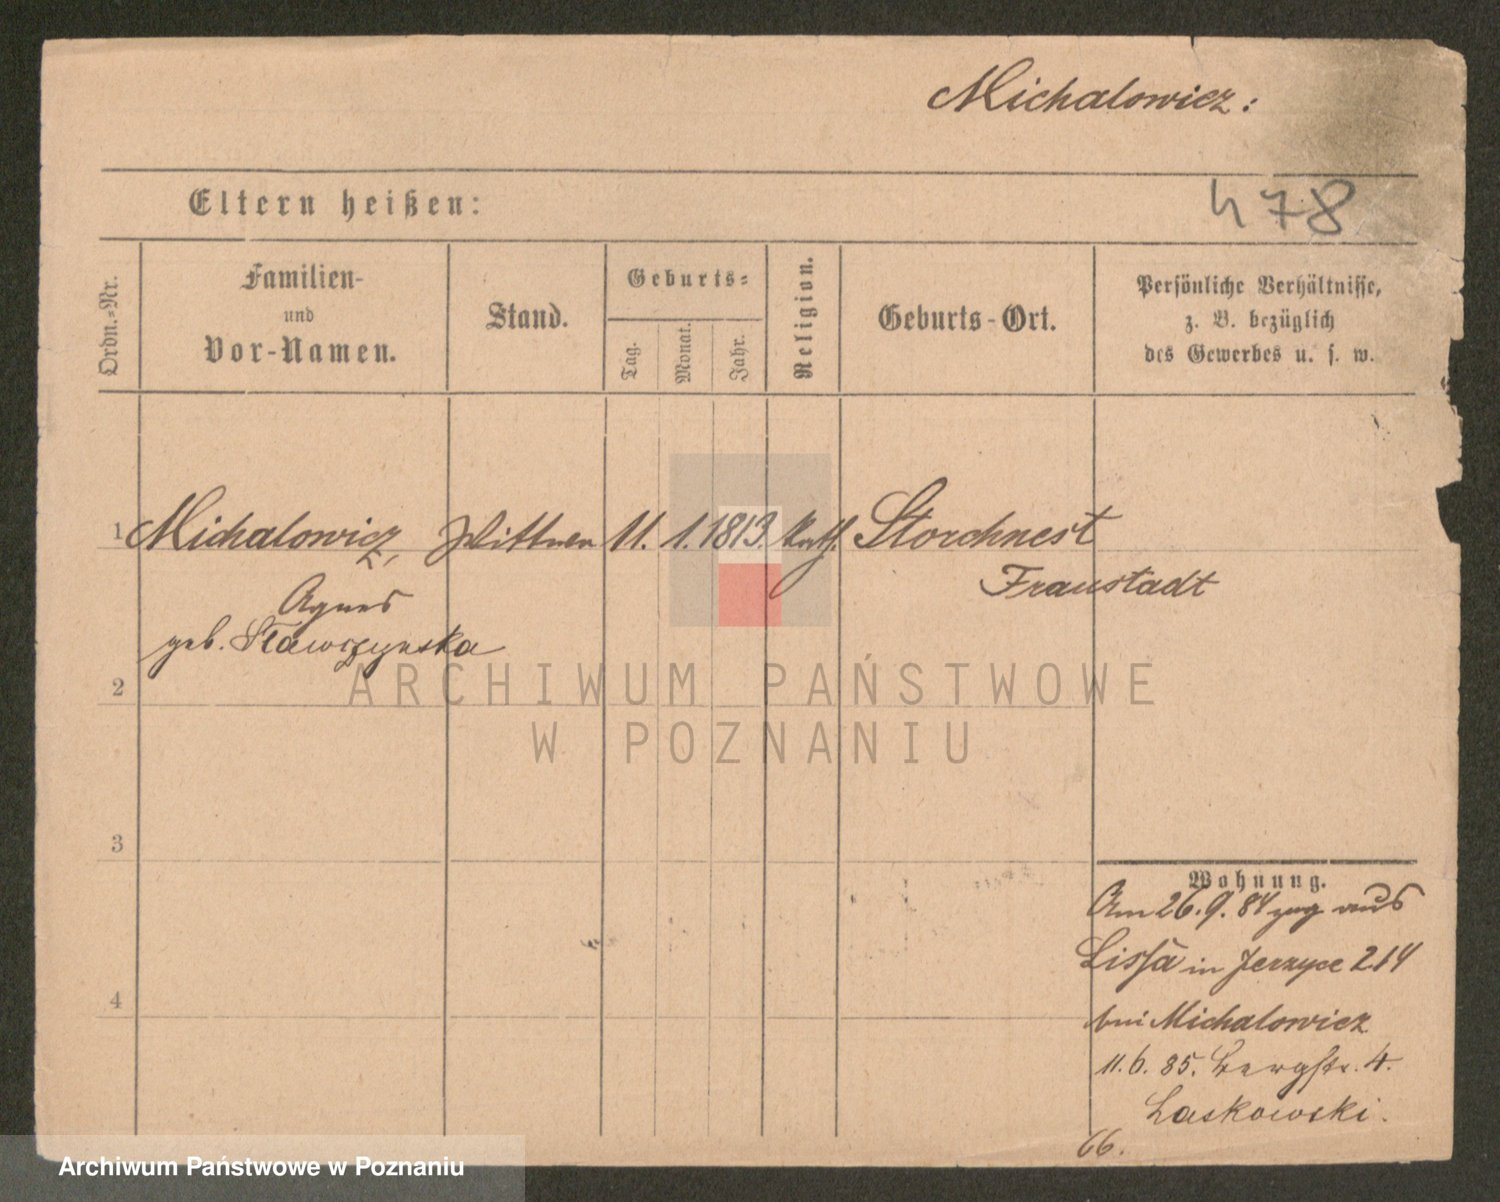 Michalowicz:
478
Eltern heißen:
Ordn.-Nr.
Familien-
und
Vor-Namen.
Stand.
Geburts-
Tag.
Monat.
Jahr.
Religion.
Geburts-Ort.
Persönliche Verhältnisse,
z. B. bezüglich
des Gewerbes u. s. w.
1 Michalowicz, Wittwe 11. 1. 1813. kath. Storchnest
Fraustadt
Agnes
geb. Sławczynska
2
ARCHIWUM PAŃSTWOWE
W POZNANIU
3
Wohnung.
Am 26.9.84 zug aus
Lissa in Jerzyce 214
bei Michalowicz
11.6.85. Bergstr. 4.
Laskowski.
66.
4
Archiwum Państwowe w Poznaniu